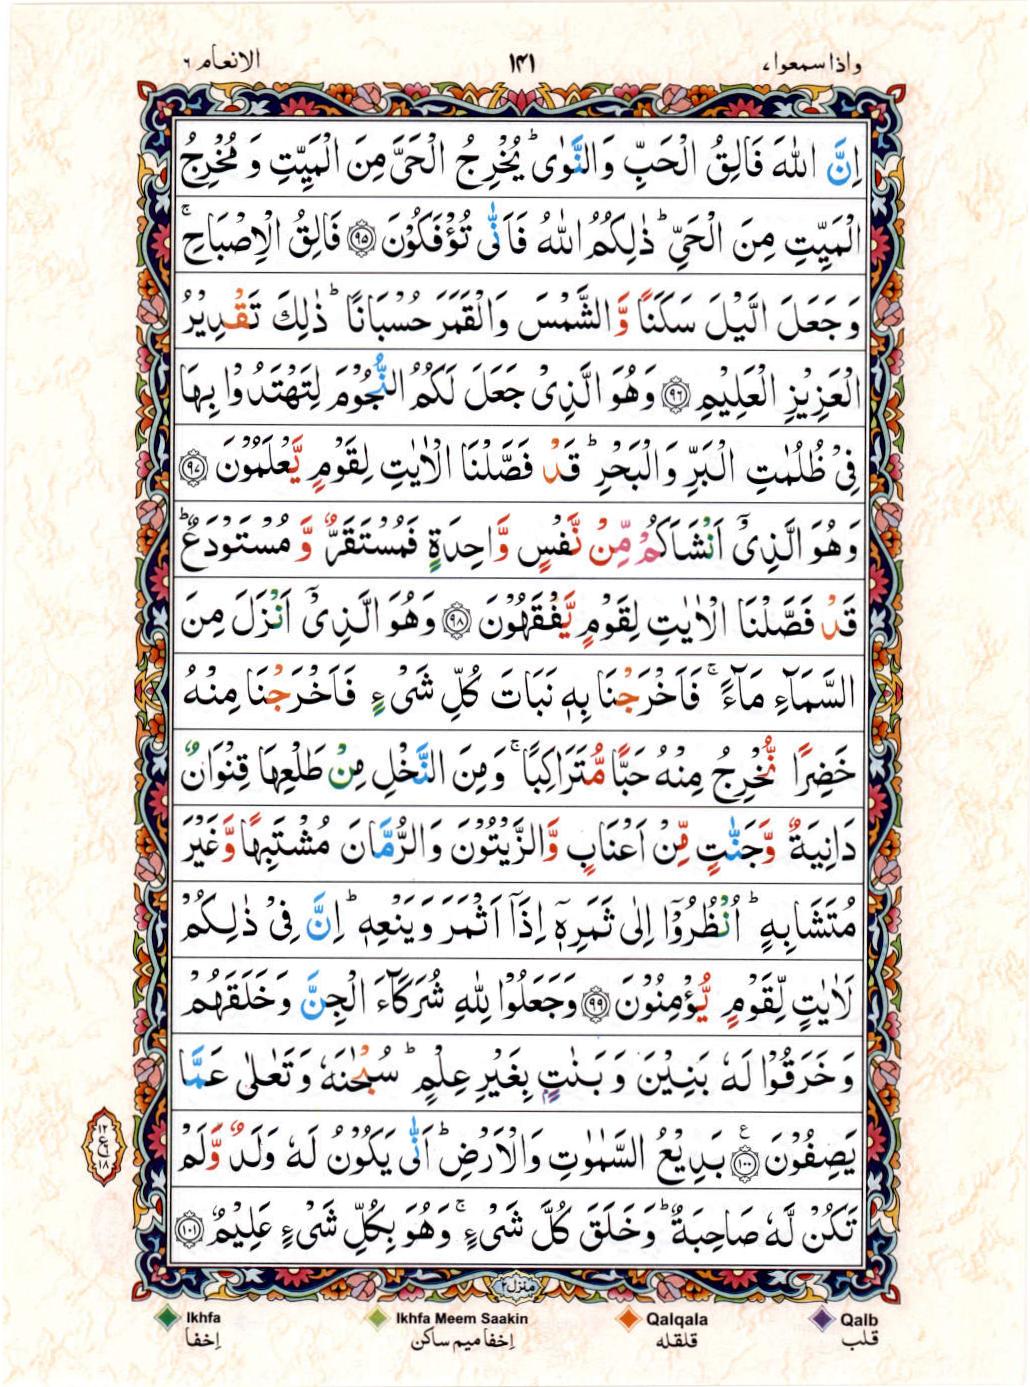 واذا سمعوا ٧
١٤١
الانعام ٦
اِنَّ اللّٰهَ فَالِقُ الْحَبِّ وَالنَّوٰى ؕ يُخْرِجُ الْحَىَّ مِنَ الْمَيِّتِ وَ مُخْرِجُ
الْمَيِّتِ مِنَ الْحَىِّ ؕ ذٰلِكُمُ اللّٰهُ فَاَنّٰى تُؤْفَكُوْنَ ۝٩٥ فَالِقُ الْاِصْبَاحِ ۚ
وَ جَعَلَ الَّيْلَ سَكَنًا وَّ الشَّمْسَ وَالْقَمَرَ حُسْبَانًا ؕ ذٰلِكَ تَقْدِيْرُ
الْعَزِيْزِ الْعَلِيْمِ ۝٩٦ وَهُوَ الَّذِىْ جَعَلَ لَكُمُ النُّجُوْمَ لِتَهْتَدُوْا بِهَا
فِىْ ظُلُمٰتِ الْبَرِّ وَالْبَحْرِ ؕ قَدْ فَصَّلْنَا الْاٰيٰتِ لِقَوْمٍ يَّعْلَمُوْنَ ۝٩٧
وَهُوَ الَّذِىْۤ اَنْشَاَكُمْ مِّنْ نَّفْسٍ وَّاحِدَةٍ فَمُسْتَقَرٌّ وَّ مُسْتَوْدَعٌ ؕ
قَدْ فَصَّلْنَا الْاٰيٰتِ لِقَوْمٍ يَّفْقَهُوْنَ ۝٩٨ وَهُوَ الَّذِىْۤ اَنْزَلَ مِنَ
السَّمَآءِ مَآءً ۚ فَاَخْرَجْنَا بِهٖ نَبَاتَ كُلِّ شَىْءٍ فَاَخْرَجْنَا مِنْهُ
خَضِرًا نُّخْرِجُ مِنْهُ حَبًّا مُّتَرَاكِبًا ۚ وَمِنَ النَّخْلِ مِنْ طَلْعِهَا قِنْوَانٌ
دَانِيَةٌ وَّجَنّٰتٍ مِّنْ اَعْنَابٍ وَّالزَّيْتُوْنَ وَالرُّمَّانَ مُشْتَبِهًا وَّغَيْرَ
مُتَشَابِهٍ ؕ اُنْظُرُوْۤا اِلٰى ثَمَرِهٖۤ اِذَاۤ اَثْمَرَ وَيَنْعِهٖ ؕ اِنَّ فِىْ ذٰلِكُمْ
لَاٰيٰتٍ لِّقَوْمٍ يُّؤْمِنُوْنَ ۝٩٩ وَجَعَلُوْا لِلّٰهِ شُرَكَآءَ الْجِنَّ وَخَلَقَهُمْ
وَ خَرَقُوْا لَهٗ بَنِيْنَ وَ بَنٰتٍۭ بِغَيْرِ عِلْمٍ ؕ سُبْحٰنَهٗ وَتَعٰلٰى عَمَّا
يَصِفُوْنَ ۝١٠٠ ع بَدِيْعُ السَّمٰوٰتِ وَالْاَرْضِ ؕ اَنّٰى يَكُوْنُ لَهٗ وَلَدٌ وَّلَمْ
تَكُنْ لَّهٗ صَاحِبَةٌ ؕ وَخَلَقَ كُلَّ شَىْءٍ ۚ وَهُوَ بِكُلِّ شَىْءٍ عَلِيْمٌ ۝١٠١
١٢
ع
١٨
منزل ٢
Ikhfa
Ikhfa Meem Saakin
Qalqala
Qalb
اِخفا
اِخفا میم ساکن
قلقله
قلب